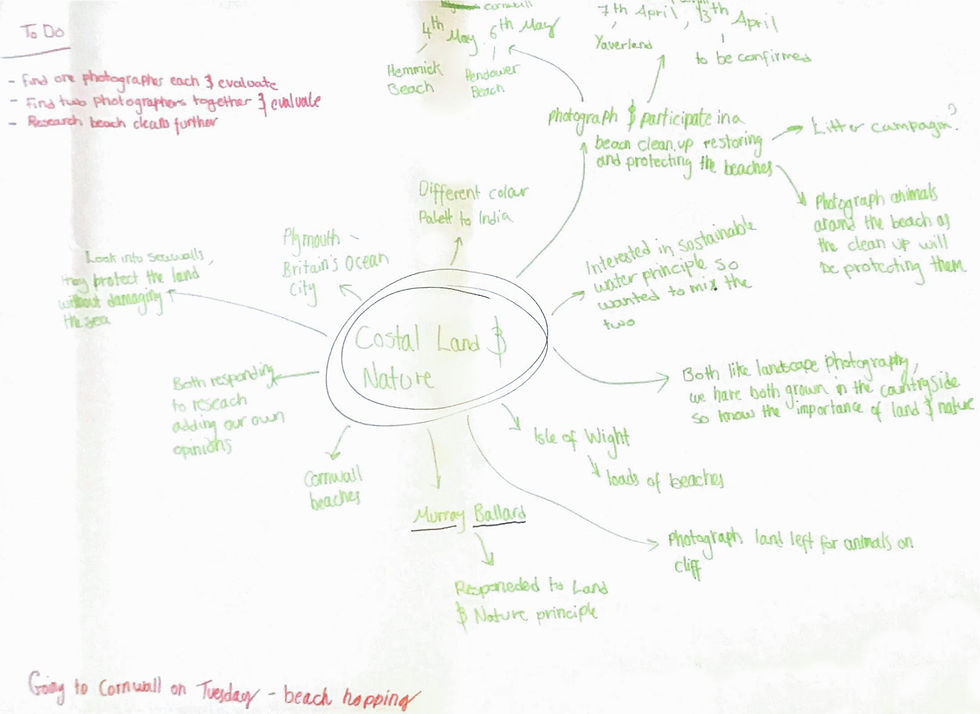 To Do
- Find one photographer each & evaluate
- Find two photographers together & evaluate
- Research beach cleans further
Cornwall
4th May
6th May
Hemmick
Beach
Pendower
Beach
7th April, 13th April
Yaverland
to be confirmed
photograph & participate in a
beach clean up restoring
and protecting the beaches
Litter campagin?
Photograph animals
around the beach as
the clean up will
be protecting them
Different colour
Palett to India
Plymouth -
Britain's Ocean
City
Look into seawalls,
they protect the land
without damaging
the sea
Interested in sustainable
water principle so
wanted to mix the
two
Costal Land &
Nature
Both like landscape photography,
we have both grown in the countryside
so know the importance of land & nature
Both responding
to reseach
adding our own
opinions
Isle of Wight
loads of beaches
Cornwall
beaches
Murray Ballard
Photograph land left for animals on
cliff
Responeded to Land
& Nature principle
Going to Cornwall on Tuesday - beach hopping